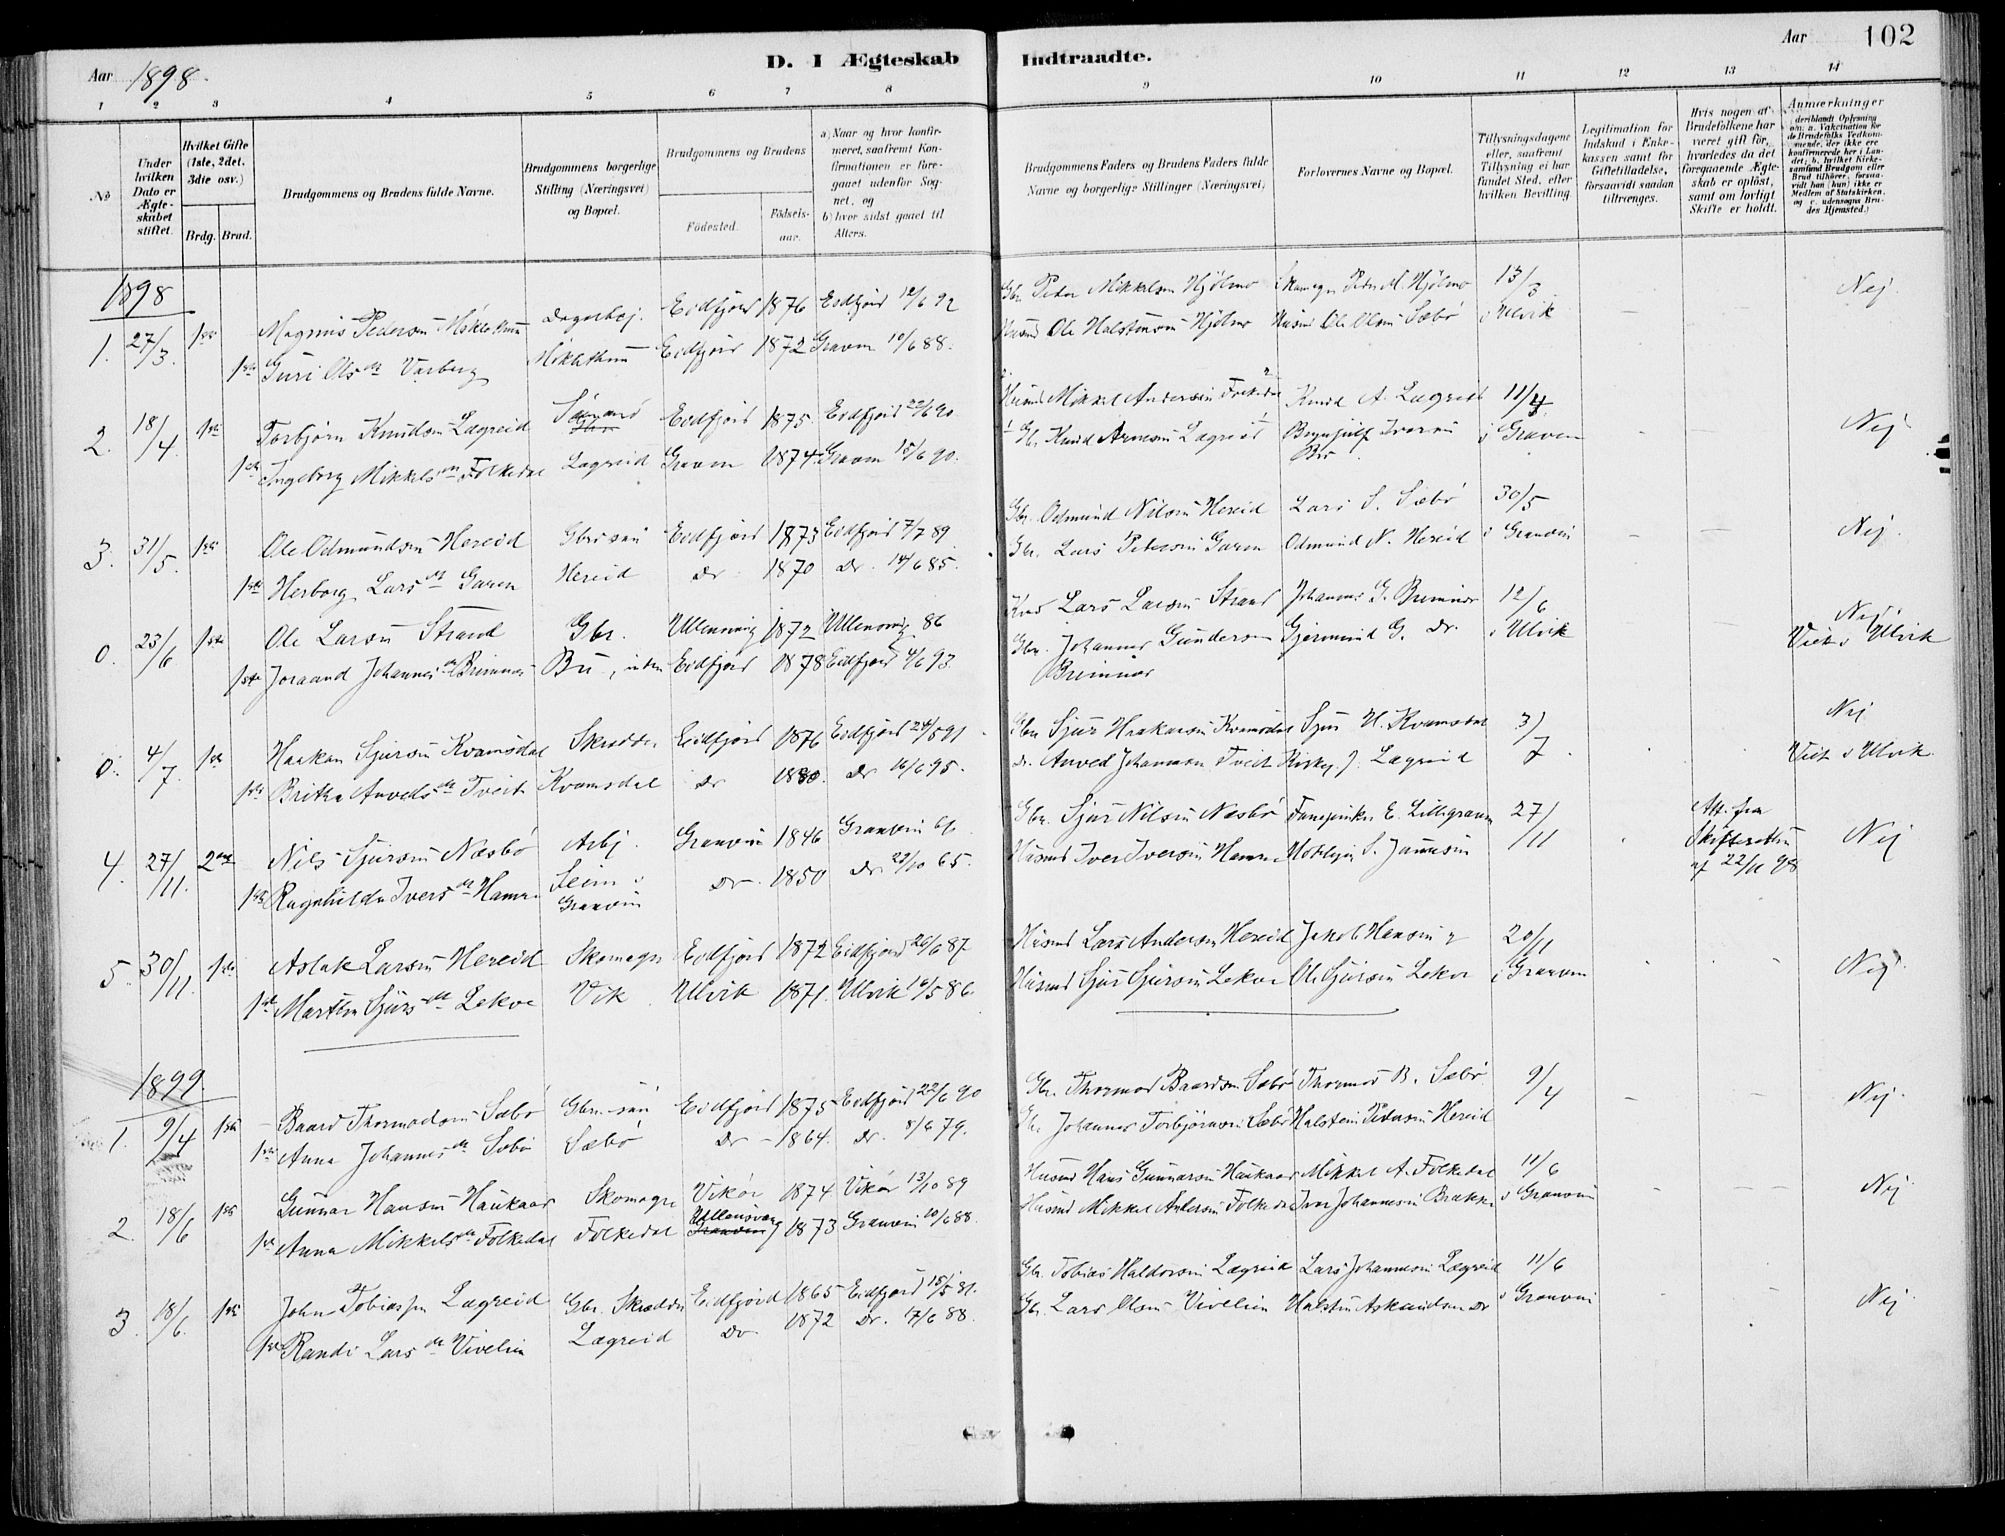 Aar 1898.
D. I Ægteskab Indtraadte.
Aar 102
1 2 3 4 5 6 7 8 9 10 11 12 13 14
No
Under hvilken Dato er Ægteskabet stiftet.
Hvilket Gifte (1ste, 2det, 3die osv.)
Brdg. Brud.
Brudgommens og Brudens fulde Navne.
Brudgommens borgerlige Stilling (Næringsvei) og Bopæl.
Brudgommens og Brudens
Fødested. Fødselsaar.
a) Naar og hvor konfirmeret, saafremt Konfirmationen er foregaaet udenfor Sognet, og
b) hvor sidst gaaet til Alters.
Brudgommens Faders og Brudens Faders fulde Navne og borgerlige Stillinger (Næringsvei).
Forlovernes Navne og Bopæl.
Tillysningsdagene eller, saafremt Tillysning ei har fundet Sted, efter hvilken Bevilling.
Legitimation for Indskud i Enkekassen samt for Giftetilladelse, forsaavidt saadan tiltrænges.
Hvis nogen af Brudefolkene har været gift før, hvorledes da det foregaaende Ægteskab er opløst, samt om lovligt Skifte er holdt.
Anmerkninger
deriblandt Oplysning om: a. Vakcination for de Brudefolks Vedkommende, der ikke ere konfirmerede her i Landet; b. hvilket Kirkesamfund Brudgom eller Brud tilhører, forsaavidt han (hun) ikke er Medlem af Statskirken, og c. udensogns Brudes Hjemsted.)
1898
1. 27/3. 1ste Magnus Pedersen Dagarbej. Eidfjord 1876 Eidfjord 12/6 92 Gbr. Peder Mikkelsen Hjølmo Skomager Peder M. Hjølmo 13/3 Nej
1ste Guri Olsdtr Varberg Eidfjord 1872 Graven 10/6 88. Husmd Ole Halstensen Hjølmo Husmd Ole Olsen Sæbø i Ulvik
2. 18/4. 1ste Torbjørn Knudsen Lægreid Sømand Eidfjord 1875 Eidfjord 22/6 90 Husmd Mikkel Andersen Folkedal Knud A. Lægreid 11/4 Nej
1ste Ingeborg Mikkelsdtr Folkedal Lægreid Graven 1874 Graven 15/6 90. Gbr. Knud Arnesen Lægreid Brynjulf Iversen Bu i Graven
3. 31/5. 1ste Ole Odmundsen Hereid Gbrs søn Eidfjord 1873 Eidfjord 7/7 89 Gbr. Odmund Nilsen Hereid Lars S. Sæbø 30/5 Nej.
1ste Herborg Larsdtr Garen Hereid Do 1870 Do. 14/6 85. Gbr. Lars Pedersen Garen Odmund N. Hereid i Granvin
0. 23/6 1ste Ole Larsen Strand Gbr. Ullensvang 1872 Ullensvang 86 Lars Larsen Strand Johannes G. Brimnes 12/6 Nej
1ste Joraand Johannesdtr Brimnes Bu, Eidfjord 1878 Eidfjord 4/6 93 Gbr. Johannes Gunderson Brimnes Gjermund G. Do. i Ulvik Viet i Ulvik
0. 4/7. 1ste Haakon Sjursen Kvamsdal Skredder Eidfjord 1876 Eidfjord 24/5 91 Gbr Sjur Haakonsen Kvamsdal Sjur H. Kvamsdal 3/7 Nej
1ste Britha Anvedsdtr Tveit Kvamsdal Do 1880. Do 16/6 95. Do. Anved Johannesen Tveit Lægreid Viet i Ulvik
4. 27/11. 2det Nils Sjursen Næsbø Arbj. Granvin 1846 Granvin 61. Gbr. Sjur Nilsen Næsbø E. Lillegraven 27/11 Att. fra Skifteretten af 22/11 98 Nej
1ste Ragnhilda Iversdtr Hamre Seim i Granvin Do. 1850 Do 22/10 65. Husmd Iver Iversen Hamre S. Jannsen
5. 30/11. 1ste Aslak Larsen Hereid Skomager Eidfjord 1872 Eidfjord 26/6 87 Husmd Lars Andersen Hereid Jakob Hansen 20/11 Nej
1ste Martha Sjursdtr Lekve Vik Ulvik 1871. Ulvik 16/5 86. Husmd Sjur Sjursen Lekve Ole Sjursen Lekve i Granvin
1899.
1. 9/4 1ste Baard Thormodsen Sæbø Gbr. søn Eidfjord 1875 Eidfjord 22/6 90 Gbr. Thormod Baardsen Sæbø Thormod B. Sæbø 9/4 Nej
1ste Anna Johannesdtr Sæbø Sæbø Do 1864. Do. 8/6 79. Gbr Johannes Torbjørnsen Sæbø Halstein Pedersen Hereid
2. 18/6 1ste Gunnar Hansen Haukaas Skomager Vikør 1874 Vikør 13/10 89 Husmd Hans Gunnarsen Haukaas Mikkel A. Folkedal 11/6 Nej
1ste Anna Mikkelsdtr Folkedal Folkedal Ullensvang 1873 Granvin 10/6 88. Husmd Mikkel Andersen Folkedal Iver Johannesen i Granvin
3. 18/6. 1ste John Tobiassen Lægreid Gbr. Skredder Eidfjord 1865 Eidfjord 15/5 81. Gbr. Tobias Haldorsen Lægreid Lars Johannesen Lægreid 11/6 Nej
1ste Randi Larsdtr Vivelien Lægreid Do 1872 Do. 17/6 88. Gbr. Lars Olsen Vivelien Halsten Askvindsen Do i Granvin